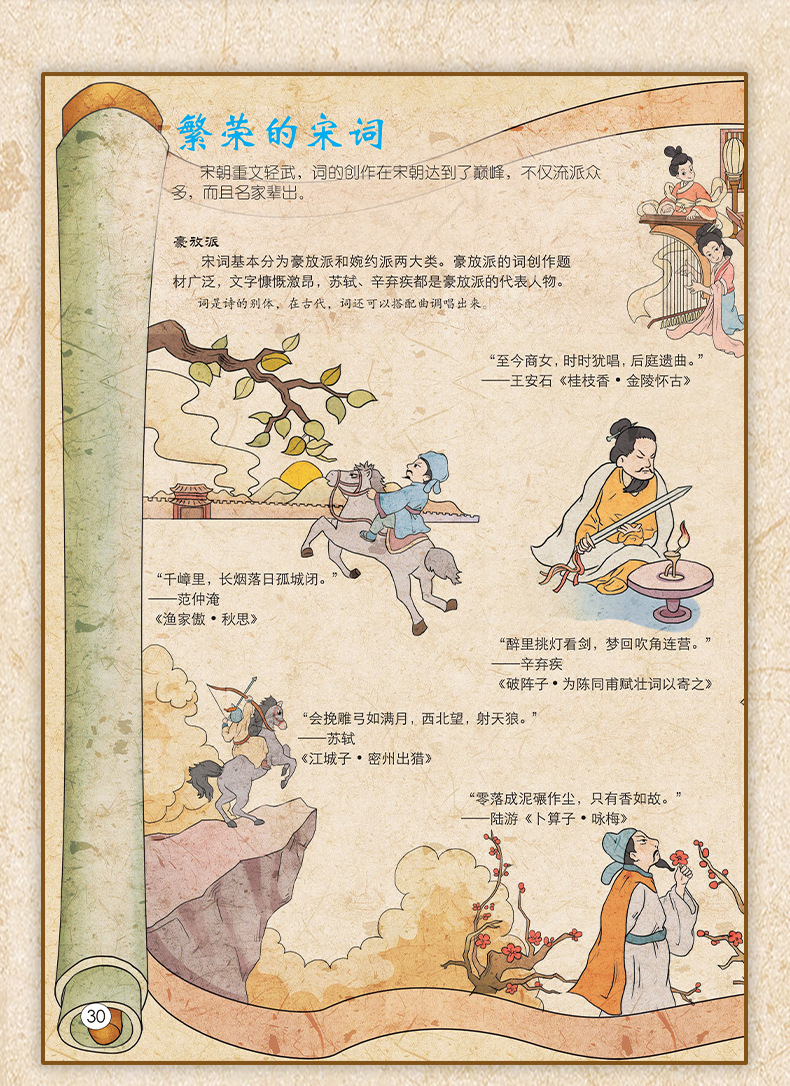 繁荣的宋词
宋朝重文轻武，词的创作在宋朝达到了巅峰，不仅流派众
多，而且名家辈出。
豪放派
宋词基本分为豪放派和婉约派两大类。豪放派的词创作题
材广泛，文字慷慨激昂，苏轼、辛弃疾都是豪放派的代表人物。
词是诗的别体，在古代，词还可以搭配曲调唱出来。
“至今商女，时时犹唱，后庭遗曲。”
——王安石《桂枝香•金陵怀古》
“千嶂里，长烟落日孤城闭。”
——范仲淹
《渔家傲•秋思》
“醉里挑灯看剑，梦回吹角连营。”
——辛弃疾
《破阵子•为陈同甫赋壮词以寄之》
“会挽雕弓如满月，西北望，射天狼。”
——苏轼
《江城子•密州出猎》
“零落成泥碾作尘，只有香如故。”
——陆游《卜算子•咏梅》
30